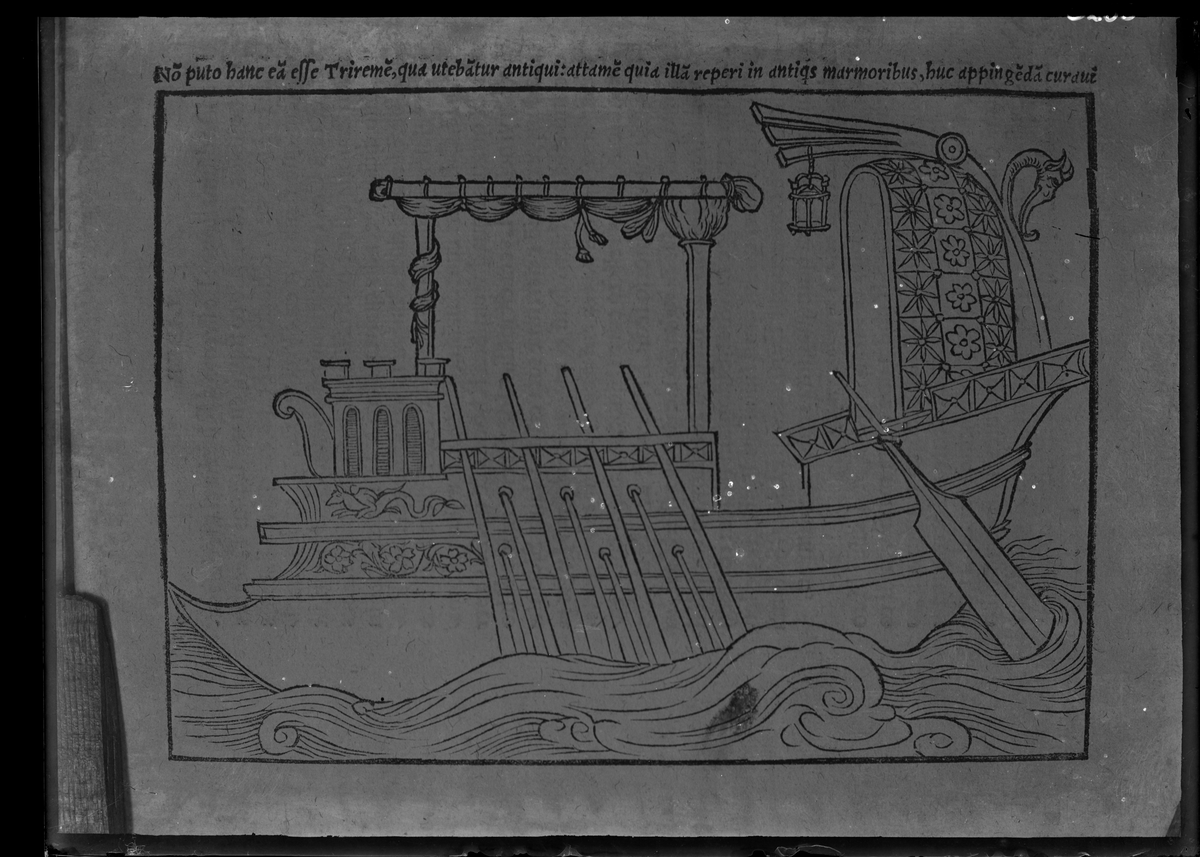 Nō puto hanc eā esse Triremē, qua utebātur antiqui: attamē quia illā reperi in antiq́s marmoribus, huc appingēdā curaui